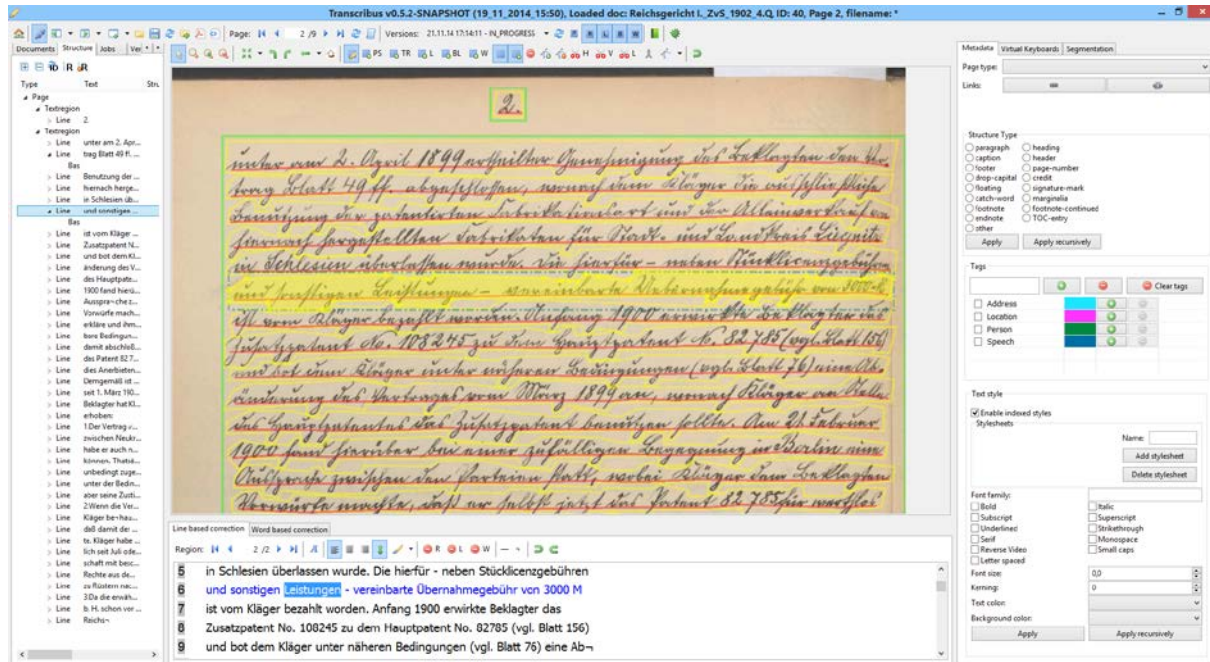 Transcribus v0.5.2-SNAPSHOT (19_11_2014_15:50), Loaded doc: Reichsgericht I._ZvS_1902_4.Q, ID: 40, Page 2, filename: *
Page: 2 /9 Versions: 21.11.14 17:14:11 - IN_PROGRESS
Documents Structure Jobs Ver
PS TR L BL W H V L
Type Text Stru
Page
Textregion
Line 2.
Textregion
Line unter am 2. Apr...
Line trag Blatt 49 ff. ...
Bas
Line Benutzung der ...
Line hiernach herge...
Line in Schlesien üb...
Line und sonstigen ...
Bas
Line ist vom Kläger ...
Line Zusatzpatent N...
Line und bot dem Kl...
Line änderung des V...
Line des Hauptpate...
Line 1900 fand hierü...
Line Ausspra¬che z...
Line Vorwürfe mach...
Line erkläre und ihm...
Line bare Bedingun...
Line damit abschließ...
Line das Patent 82 7...
Line dies Anerbieten...
Line Demgemäß ist ...
Line seit 1. März 190...
Line Beklagter hat Kl...
Line erhoben:
Line 1.Der Vertrag v...
Line zwischen Neukr...
Line habe er auch n...
Line können. Thatsä...
Line unbedingt zuge...
Line unter der Bedin...
Line aber seine Zusti...
Line 2.Wenn die Ver...
Line Kläger be¬hau...
Line daß damit der ...
Line te. Kläger habe ...
Line lich seit Juli ode...
Line schaft mit besc...
Line Rechte aus de...
Line zu flüstern nac...
Line 3.Da die erwäh...
Line b. H. schon vor ...
Line Reichs¬
2.
unter am 2. April 1899 ertheilter Genehmigung des Beklagten den Ver-
trag Blatt 49 ff. abgeschlossen, wonach dem Kläger die ausschließliche
Benutzung der patentirten Fabrikationsart und der Alleinverkauf an
hiernach hergestellten Fabrikaten für Stadt- und Landkreis Liegnitz
in Schlesien überlassen wurde. Die hierfür – neben Stücklicenzgebühren
und sonstigen Leistungen – vereinbarte Uebernahmegebühr von 3000 M
ist vom Kläger bezahlt worden. Anfang 1900 erwirkte Beklagter das
Zusatzpatent No. 108245 zu dem Hauptpatent N. 82785 (vgl. Blatt 156)
und bot dem Kläger unter näheren Bedingungen (vgl. Blatt 76) eine Ab-
änderung des Vertrages vom März 1899 an, wonach Kläger an Stelle
des Hauptpatentes das Zusatzpatent benützen sollte. Am 21. Februar
1900 fand hierüber bei einer zufälligen Begegnung in Berlin eine
Aussprache zwischen den Parteien statt, wobei Kläger dem Beklagten
Vorwürfe machte, daß er selbst jetzt das Patent 82785 für werthlos
Line based correction Word based correction
Region: 2 /2 R L W
5 in Schlesien überlassen wurde. Die hierfür - neben Stücklicenzgebühren
6 und sonstigen Leistungen - vereinbarte Übernahmegebühr von 3000 M
7 ist vom Kläger bezahlt worden. Anfang 1900 erwirkte Beklagter das
8 Zusatzpatent No. 108245 zu dem Hauptpatent No. 82785 (vgl. Blatt 156)
9 und bot dem Kläger unter näheren Bedingungen (vgl. Blatt 76) eine Ab¬
Metadata Virtual Keyboards Segmentation
Page type:
Links:
Structure Type
paragraph heading
caption header
footer page-number
drop-capital credit
floating signature-mark
catch-word marginalia
footnote footnote-continued
endnote TOC-entry
other
Apply Apply recursively
Tags
Clear tags
Address
Location
Person
Speech
Text style
Enable indexed styles
Stylesheets
Name:
Add stylesheet
Delete stylesheet
Font family:
Bold Italic
Subscript Superscript
Underlined Strikethrough
Serif Monospace
Reverse Video Small caps
Letter spaced
Font size: 0,0
Kerning: 0
Text color:
Background color:
Apply Apply recursively